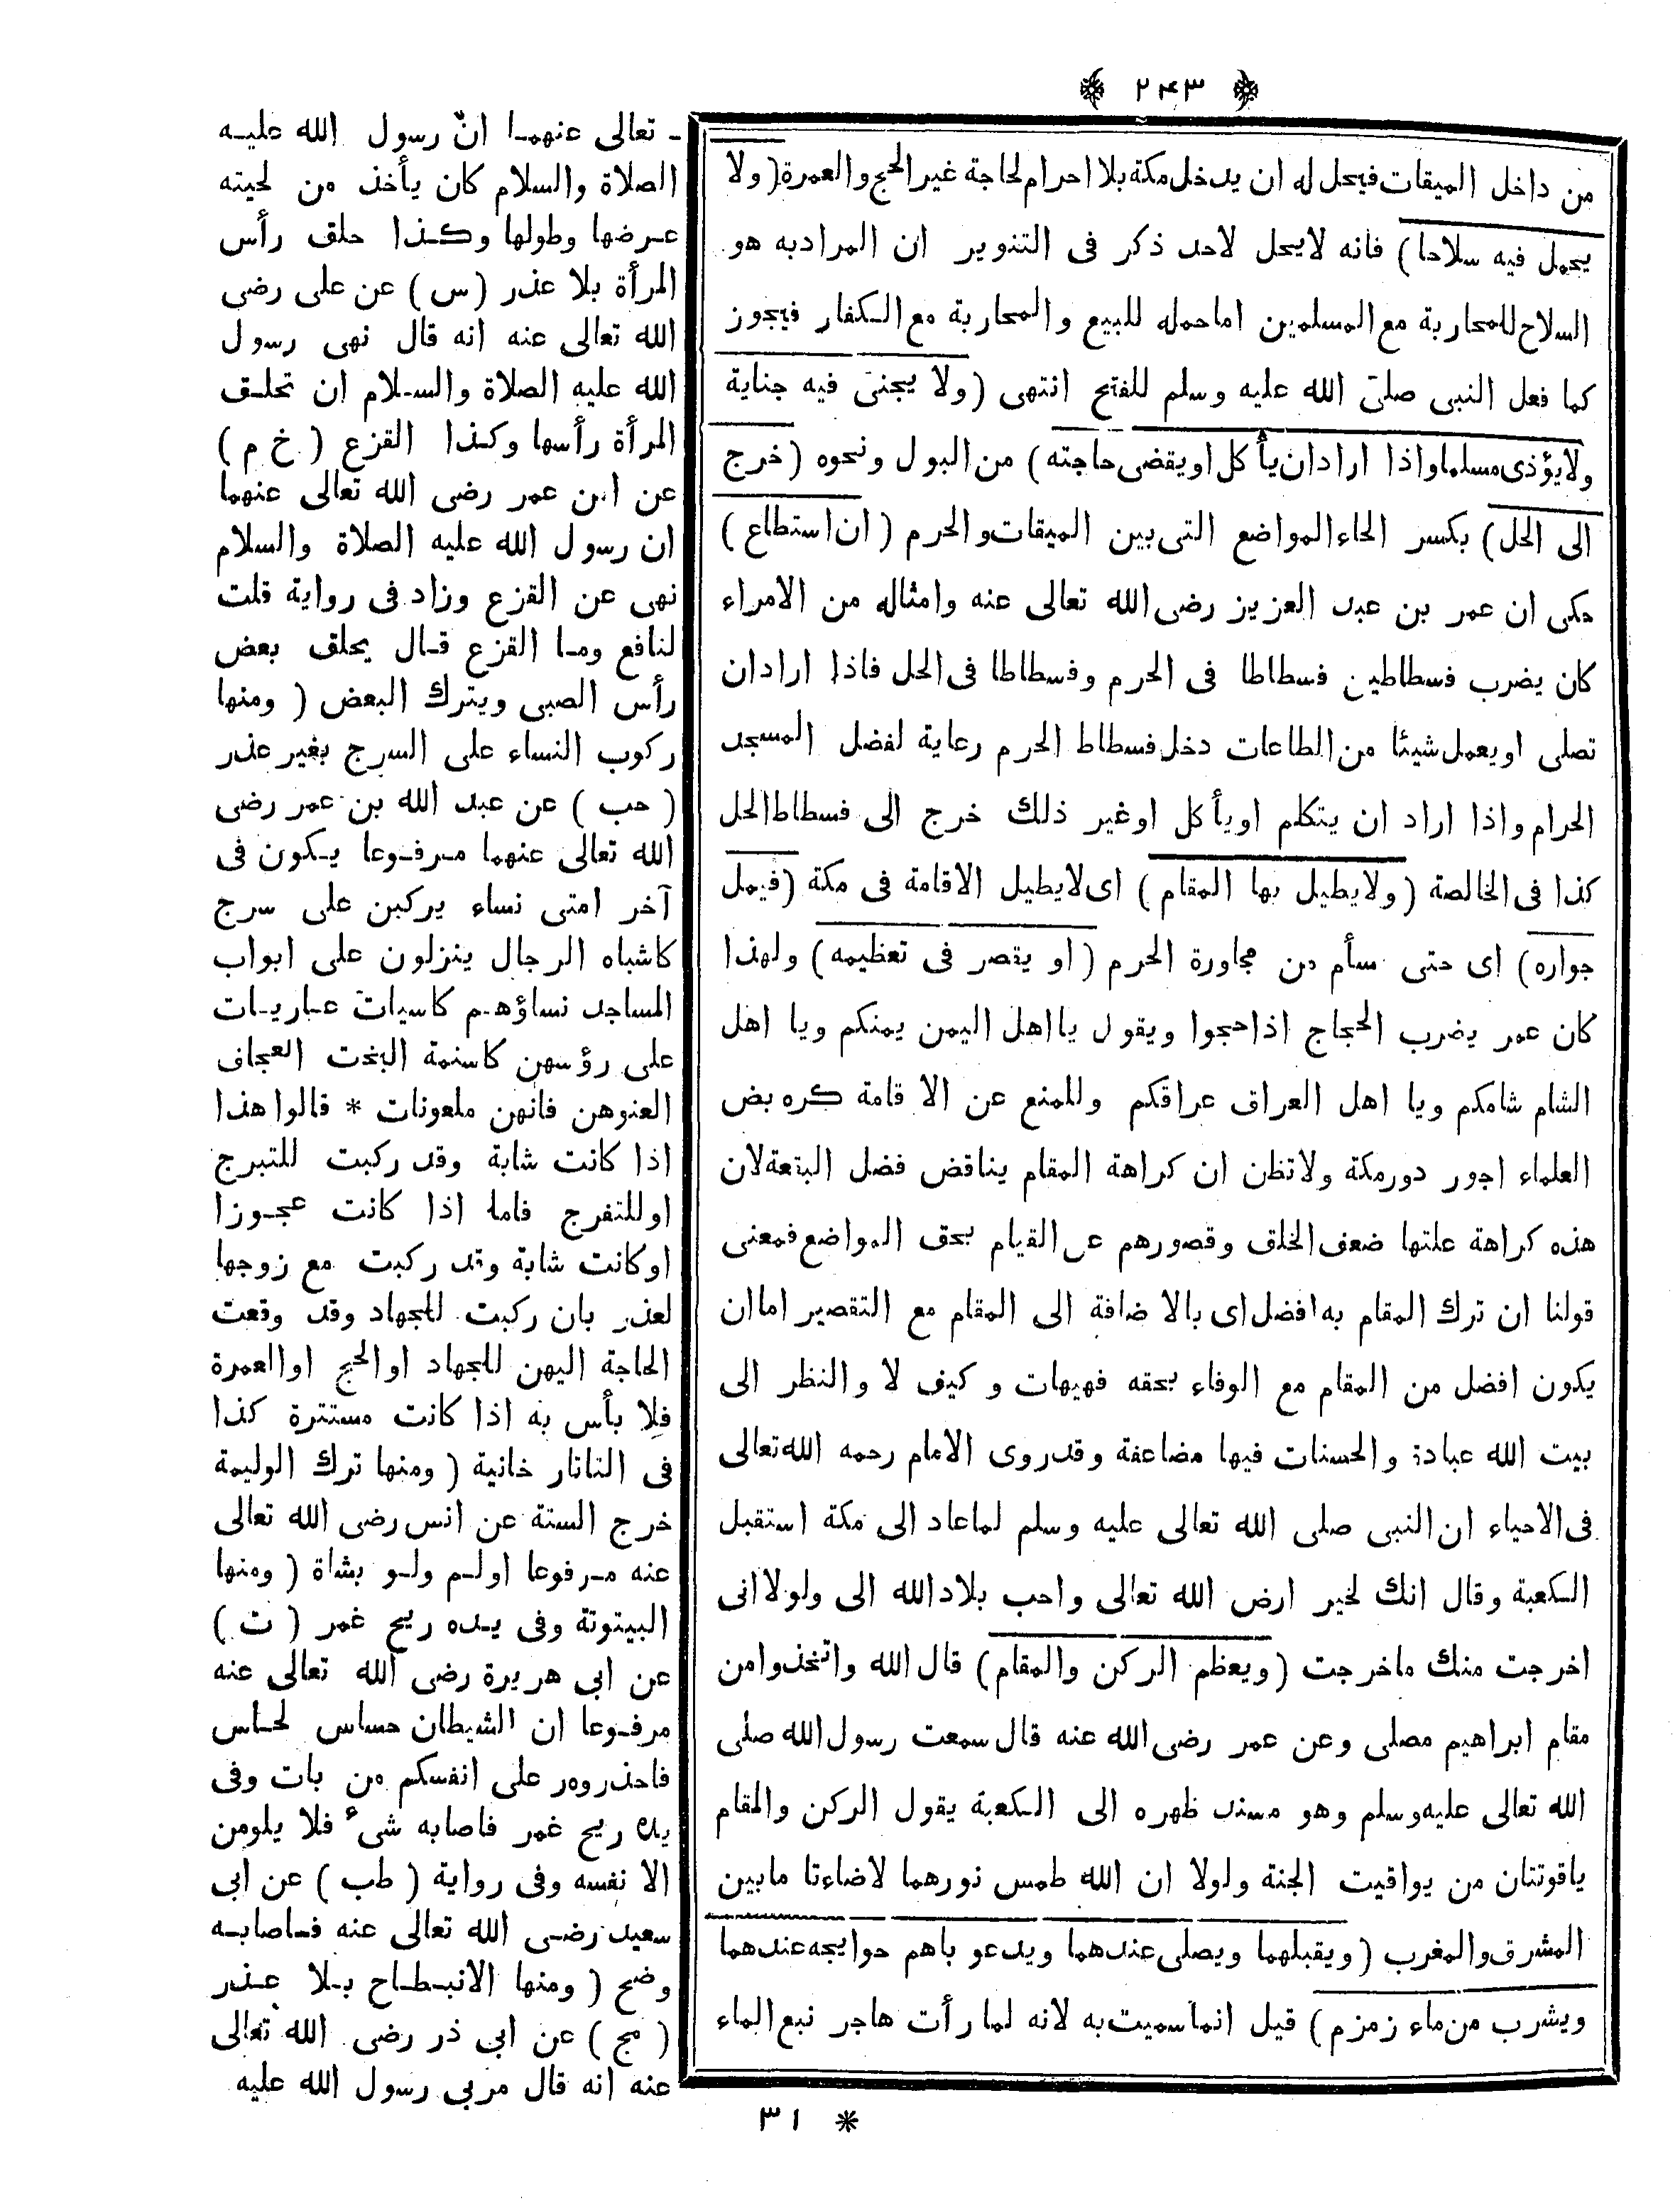 ﴿ ٢٤٣ ﴾
من داخل الميقات فيحل له ان يدخل مكة بلا احرام لحاجة غير الحج والعمرة (ولا
يحمل فيه سلاحا) فانه لا يحل لاحد ذكر فى التنوير ان المراد به هو
السلاح للمحاربة مع المسلمين اما حمله للبيع والمحاربة مع الكفار فيجوز
كما فعل النبى صلى الله عليه وسلم للفتح انتهى (ولا يجنى فيه جناية
ولا يؤذى مسلما واذا اراد ان يأكل او يقضى حاجته) من البول ونحوه (خرج
الى الحل) بكسر الحاء المواضع التى بين الميقات والحرم (ان استطاع)
حكى ان عمر بن عبد العزيز رضى الله تعالى عنه وامثاله من الامراء
كان يضرب فسطاطين فسطاطا فى الحرم وفسطاطا فى الحل فاذا اراد ان
تصلى او يعمل شيئا من الطاعات دخل فسطاط الحرم رعاية لفضل المسجد
الحرام واذا اراد ان يتكلم او يأكل او غير ذلك خرج الى فسطاط الحل
كذا فى الخالصة (ولا يطيل بها المقام) اى لا يطيل الاقامة فى مكة (فيمل
جواره) اى حتى سأم من مجاورة الحرم (او يقصر فى تعظيمه) ولهذا
كان عمر يضرب الحجاج اذا حجوا ويقول يا اهل اليمن يمنكم ويا اهل
الشام شامكم ويا اهل العراق عراقكم وللمنع عن الاقامة كره بض
العلماء اجور دور مكة ولا تظن ان كراهة المقام يناقض فضل البقعة لان
هذه كراهة علتها ضعف الخلق وقصورهم عن القيام بحق المواضع فمعنى
قولنا ان ترك المقام به افضل اى بالاضافة الى المقام مع التقصير اما ان
يكون افضل من المقام مع الوفاء بحقه فهيهات وكيف لا والنظر الى
بيت الله عبادة والحسنات فيها مضاعفة وقد روى الامام رحمه الله تعالى
فى الاحياء ان النبى صلى الله تعالى عليه وسلم لما عاد الى مكة استقبل
الكعبة وقال انك لخير ارض الله تعالى واحب بلاد الله الى ولولا انى
اخرجت منك ماخرجت (ويعظم الركن والمقام) قال الله واتخذوا من
مقام ابراهيم مصلى وعن عمر رضى الله عنه قال سمعت رسول الله صلى
الله تعالى عليه وسلم وهو مسند ظهره الى الكعبة يقول الركن والمقام
ياقوتتان من يواقيت الجنة ولولا ان الله طمس نورهما لاضاءتا مابين
المشرق والمغرب (ويقبلهما ويصلى عندهما ويدعو باهم حوايجه عندهما
ويشرب من ماء زمزم) قيل انما سميت به لانه لما رأت هاجر نبع الماء
ـ تعالى عنهما انّ رسول الله عليه
الصلاة والسلام كان يأخذ من لحيته
عرضها وطولها وكذا حلق رأس
المرأة بلا عذر (س) عن على رضى
الله تعالى عنه انه قال نهى رسول
الله عليه الصلاة والسلام ان تحلق
المرأة رأسها وكذا القزع (خ م)
عن ابن عمر رضى الله تعالى عنهما
ان رسول الله عليه الصلاة والسلام
نهى عن القزع وزاد فى رواية قلت
لنافع وما القزع قال يحلق بعض
رأس الصبى ويترك البعض (ومنها
ركوب النساء على السرج بغير عذر
(حب) عن عبد الله بن عمر رضى
الله تعالى عنهما مرفوعا يكون فى
آخر امتى نساء يركبن على سرج
كاشباه الرجال ينزلون على ابواب
المساجد نساؤهم كاسيات عاريات
على رؤسهن كاسنمة البخت العجاف
العنوهن فانهن ملعونات * قالوا هذا
اذا كانت شابة وقد ركبت للتبرج
او للتفرج فاما اذا كانت عجوزا
او كانت شابة وقد ركبت مع زوجها
لعذر بان ركبت للجهاد وقد وقعت
الحاجة اليهن للجهاد او الحج او العمرة
فلا بأس به اذا كانت مستترة كذا
فى التاتار خانية (ومنها ترك الوليمة
خرج الستة عن انس رضى الله تعالى
عنه مرفوعا اولم ولو بشاة (ومنها
البيتوتة وفى يده ريح غمر (ت)
عن ابى هريرة رضى الله تعالى عنه
مرفوعا ان الشيطان حساس لحاس
فاحذروه على انفسكم من بات وفى
يده ريح غمر فاصابه شئ فلا يلومن
الا نفسه وفى رواية (طب) عن ابى
سعيد رضى الله تعالى عنه فاصابه
وضح (ومنها الانبطاح بلا عذر
(مج) عن ابى ذر رضى الله تعالى
عنه انه قال مر بى رسول الله عليه
* ٣١